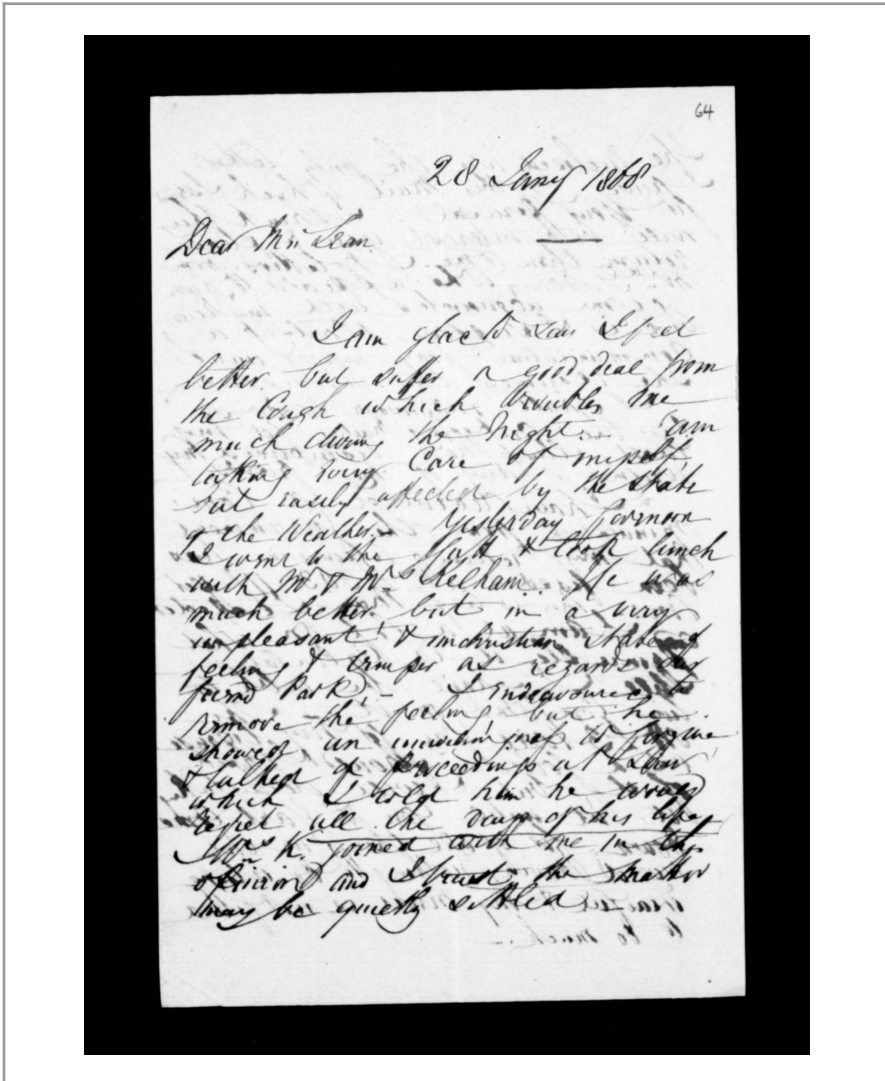 64
28 Jany 1868
Dear Mr. McLean
I am glad to say I feel
better but suffer a good deal from
the Cough which troubles me
much during the Night. I am
taking every Care of myself,
but easily affected by the State
of the Weather. - Yesterday forenoon
I went to the Hutt & took lunch
with Mr & Mrs Kelham. He was
much better but in a very
unpleasant & unchristian State of
feeling & temper as regards our
friend Park, - I endeavoured to
remove the feeling, but he
showed an unwillingness to forgive
& talked of proceedings at Law
which I told him he would
regret all the days of his life
Mrs K. joined with me in this
opinion and I trust the matter
may be quietly settled -